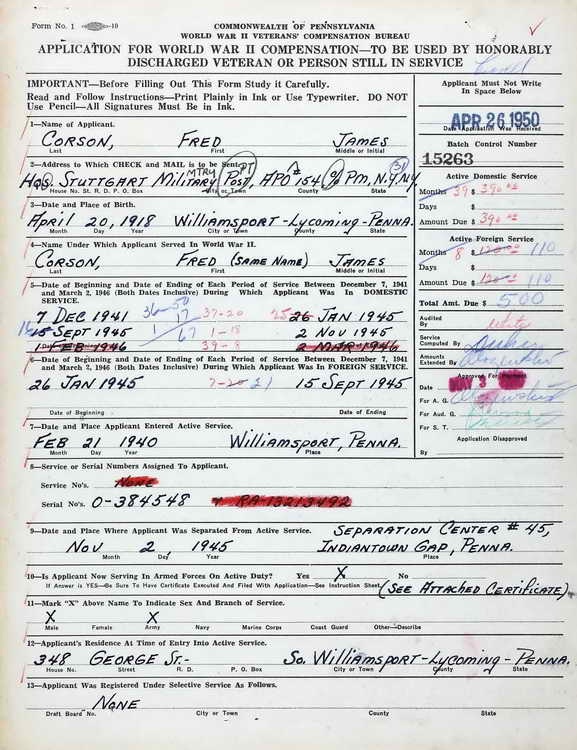 Form No. 1 —10
COMMONWEALTH OF PENNSYLVANIA
WORLD WAR II VETERANS' COMPENSATION BUREAU
APPLICATION FOR WORLD WAR II COMPENSATION—TO BE USED BY HONORABLY
DISCHARGED VETERAN OR PERSON STILL IN SERVICE
IMPORTANT—Before Filling Out This Form Study it Carefully.
Read and Follow Instructions—Print Plainly in Ink or Use Typewriter. DO NOT
Use Pencil—All Signatures Must Be in Ink.
Applicant Must Not Write
In Space Below
APR 26 1950
Date Application Was Received
Batch Control Number
15263
1—Name of Applicant.
CORSON, FRED JAMES
Last First Middle or Initial
2—Address to Which CHECK and MAIL is to be Sent.
MTRY PT
HQS. STUTTGART MILITARY POST, APO # 154, % PM, N.Y. N.Y.
House No. St. R. D. P. O. Box City or Town County State
3—Date and Place of Birth.
APRIL 20, 1918 WILLIAMSPORT-LYCOMING-PENNA.
Month Day Year City or Town County State
4—Name Under Which Applicant Served In World War II.
CORSON, FRED (SAME NAME) JAMES
Last First Middle or Initial
5—Date of Beginning and Date of Ending of Each Period of Service Between December 7, 1941
and March 2, 1946 (Both Dates Inclusive) During Which Applicant Was In DOMESTIC
SERVICE.
7 DEC 1941 37-20 25 26 JAN 1945
15 SEPT 1945 1-18 2 NOV 1945
1 FEB 1946 39-8 2 MAR 1946
6—Date of Beginning and Date of Ending of Each Period of Service Between December 7, 1941
and March 2, 1946 (Both Dates Inclusive) During Which Applicant Was In FOREIGN SERVICE.
26 JAN 1945 7-20 21 15 SEPT 1945
Date of Beginning Date of Ending
7—Date and Place Applicant Entered Active Service.
FEB 21 1940 WILLIAMSPORT, PENNA.
Month Day Year Place
Active Domestic Service
Months 39 $ 390
Days $
Amount Due $ 390
Active Foreign Service
Months 8 $ 120 110
Days $
Amount Due $ 120 110
Total Amt. Due $ 500
Audited
By
Service
Computed By
Amounts
Extended By
Approved For Payment
Date MAY 3
For A. G.
For Aud. G.
For S. T.
Application Disapproved
By
8—Service or Serial Numbers Assigned To Applicant.
Service No's. NONE
Serial No's. O-384548 + RA-13213492
9—Date and Place Where Applicant Was Separated From Active Service. SEPARATION CENTER # 45,
NOV 2 1945 INDIANTOWN GAP, PENNA.
Month Day Year Place
10—Is Applicant Now Serving In Armed Forces On Active Duty? Yes X No
If Answer is YES—Be Sure To Have Certificate Executed And Filed With Application—See Instruction Sheet. (SEE ATTACHED CERTIFICATE)
11—Mark "X" Above Name To Indicate Sex And Branch of Service.
X X
Male Female Army Navy Marine Corps Coast Guard Other—Describe
12—Applicant's Residence At Time of Entry Into Active Service.
348 GEORGE ST.- SO. WILLIAMSPORT-LYCOMING-PENNA.
House No. Street R. D. P. O. Box City or Town County State
13—Applicant Was Registered Under Selective Service As Follows.
NONE
Draft Board No. City or Town County State